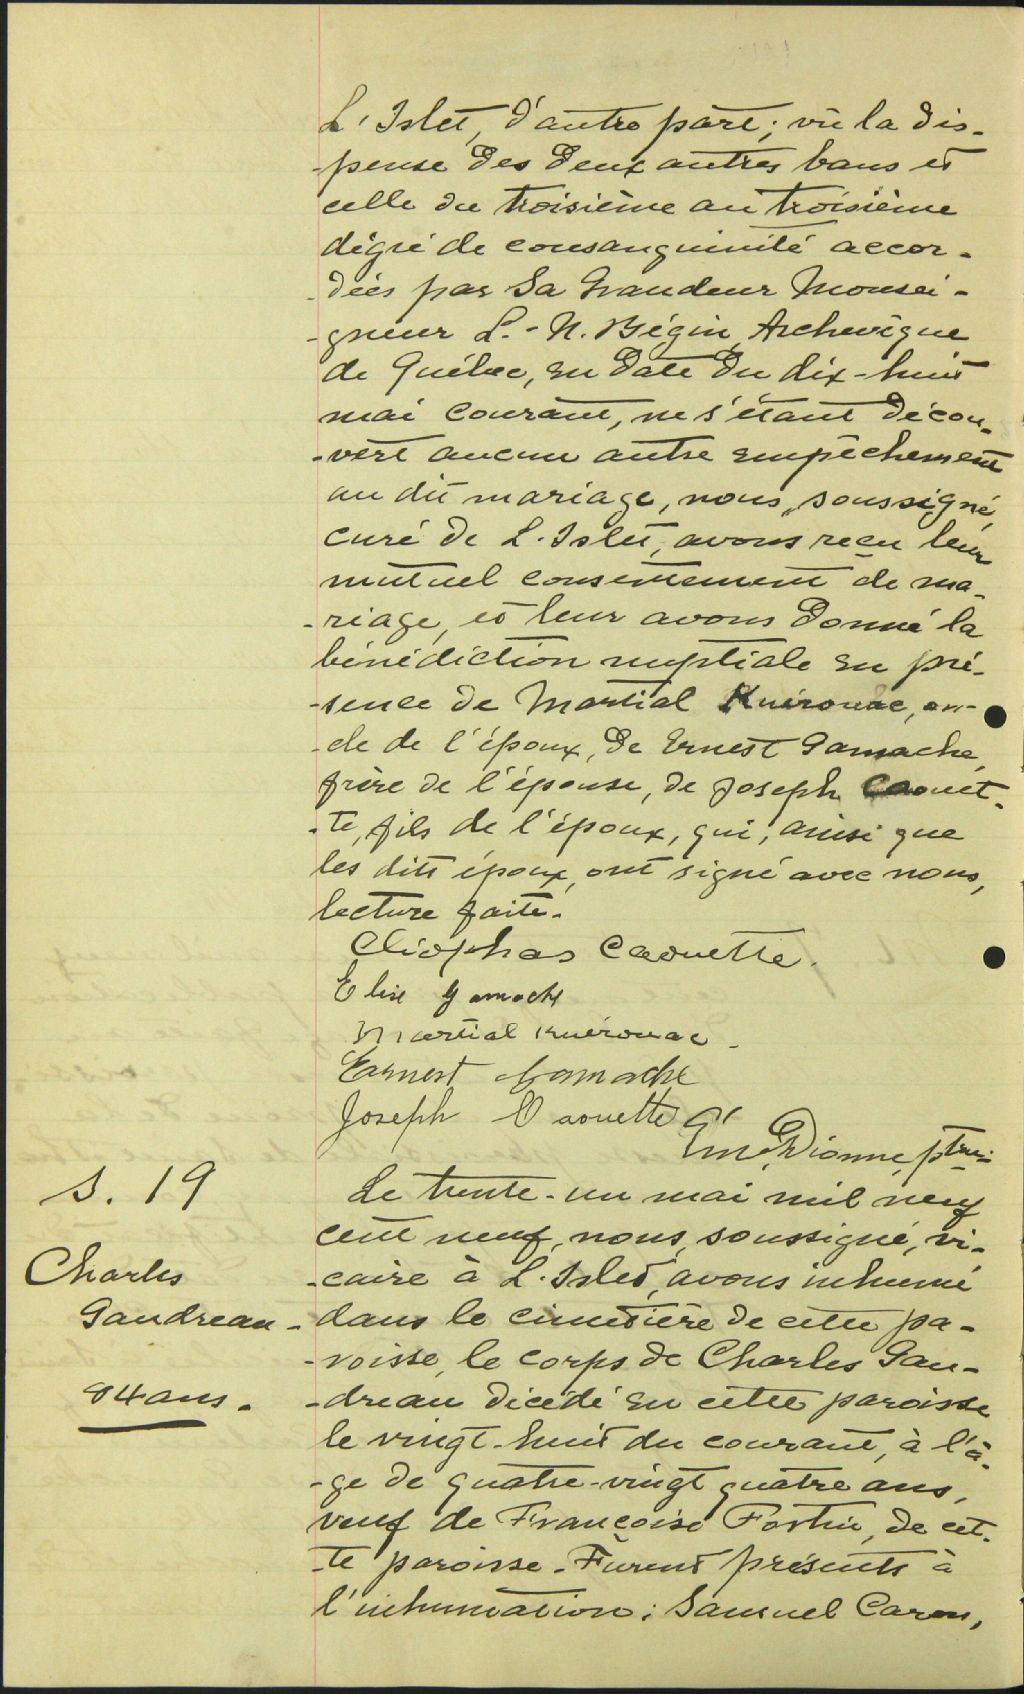 L'Islet, d'autre part; vu la dis-
-pense des deux autres bans et
celle du troisième au troisième
dégré de consanguinité accor-
-dées par Sa Grandeur Monsei-
-gneur L.-N. Bégin, Archevêque
de Québec, en date du dix-huit
mai courant, ne s'étant décou-
-vert aucun autre empêchement
au dit mariage, nous, soussigné,
curé de L'Islet, avons reçu leur
mutuel consentement de ma-
-riage, et leur avons donné la
bénédiction nuptiale en pré-
-sence de Martial Kuérouac, on-
-cle de l'époux, de Ernest Gamache,
frère de l'épouse, de Joseph Caouet-
-te, fils de l'époux, qui, ainsi que
les dits époux, ont signé avec nous,
lecture faite.
Cléophas Caouette.
Elise Gamache
Martial Kuérouac.
Ernest Gamache
Joseph Caouette
Em. Dionne, ptre
S. 19
Charles
Gaudreau-
84 ans.
Le trente-un mai mil neuf
cent neuf, nous, soussigné, vi-
-caire à L'Islet, avons inhumé
dans le cimetière de cette pa-
-roisse, le corps de Charles Gau-
-dreau décédé en cette paroisse
le vingt-huit du courant, à l'â-
-ge de quatre-vingt quatre ans,
veuf de Françoise Fortin, de cet-
-te paroisse. Furent présents à
l'inhumation: Samuel Caron,